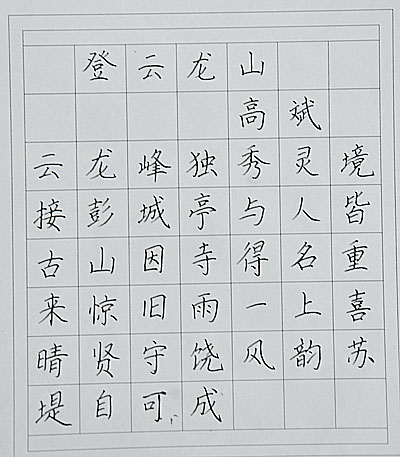 登云龙山
高斌
云龙峰独秀灵境
接彭城亭与人皆
古山因寺得名重
来惊旧雨一上喜
晴贤守饶风韵苏
堤自可成